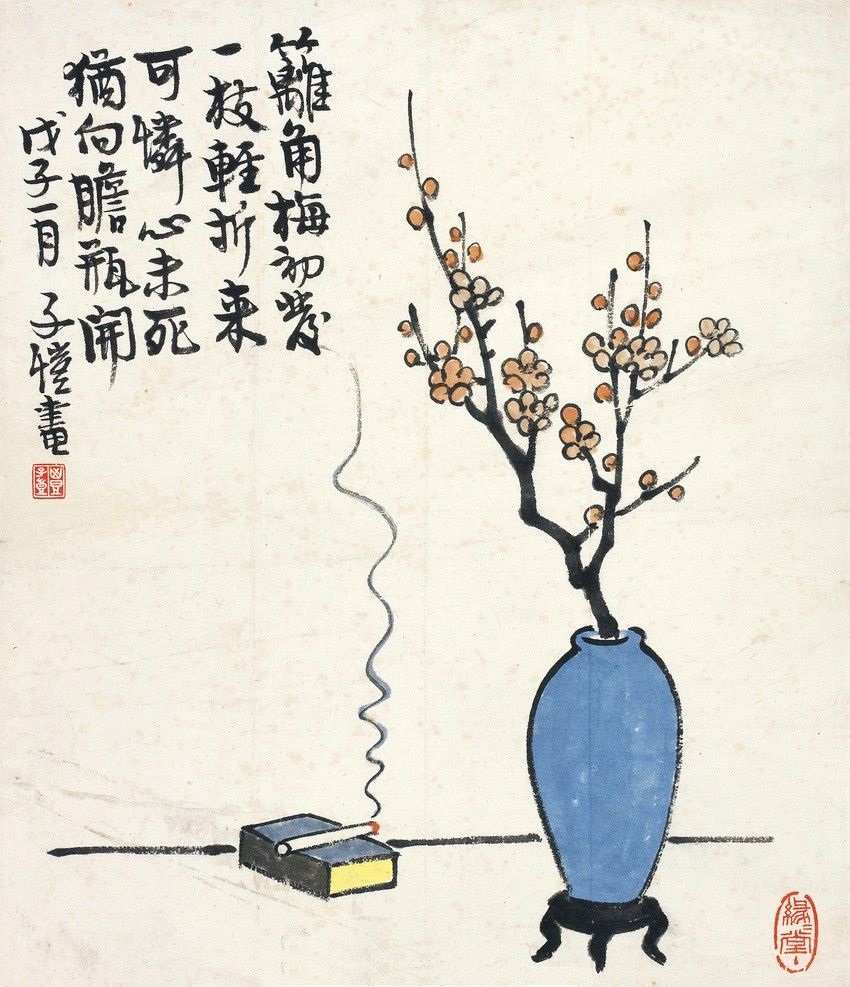 籬角梅初發
一枝輕折來
可憐心未死
猶向瞻瓶開
戊子一月 子愷畫
豐子愷
緣緣堂